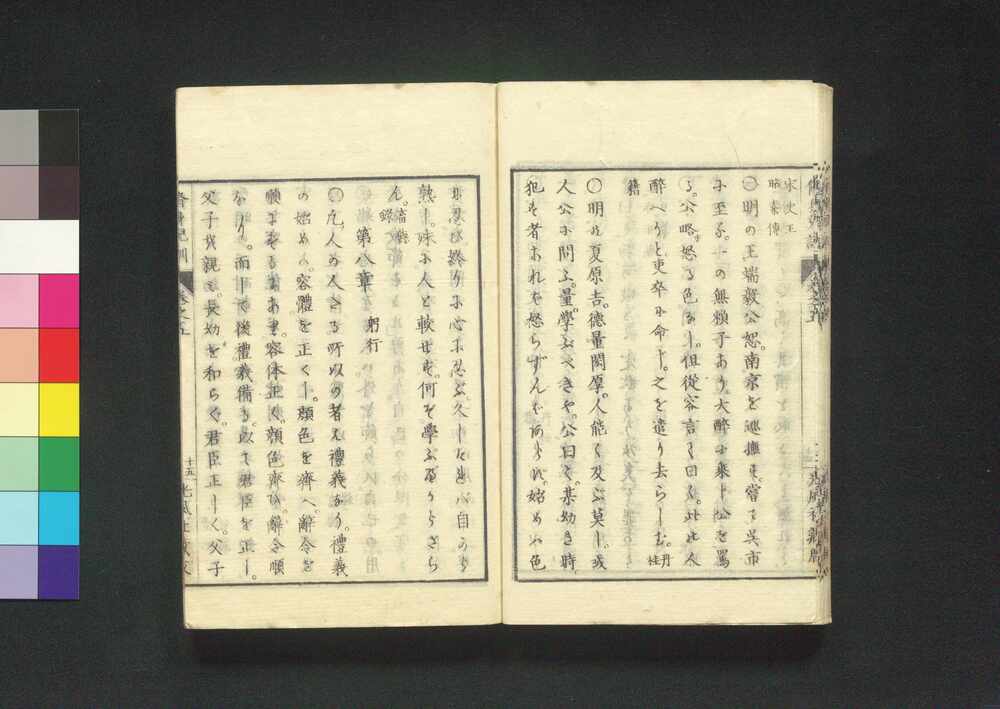 宋史王
曠素傳
○明の王端毅公恕。南京を巡撫す。嘗て呉市
に至る。一の無頼子あり。大醉し来し公を罵
る。公略怒る色なし。但從容言て曰く。此此人
醉へりと吏卒に命じ。之を遣り去らしむ。丹桂
籍
○明の夏原吉。德量閎厚。人能く及ぶ莫し。或
人公に問ふ。量。學ぶべきや。公曰く。某幼き時。
犯す者あれば怒らずんばあらず。始めは色
に忍び終りに心に忍ぶ。久しければ自から
熟し。殊に人と較せず。何ぞ學ぶ可からざら
ん。畜德録
第八章 躬行
○凡人の人たる所以の者は禮義なり。禮義
の始め。容體を正くし。顔色を齊へ。辭令を
順にするにあり。容体正く。顔色齊ひ。辭令順
なり。而して後禮義備る。以て君臣を正し。
父子を親し。長幼を和らぐ。君臣正しく。父子
脩身児訓
卷之五
十五